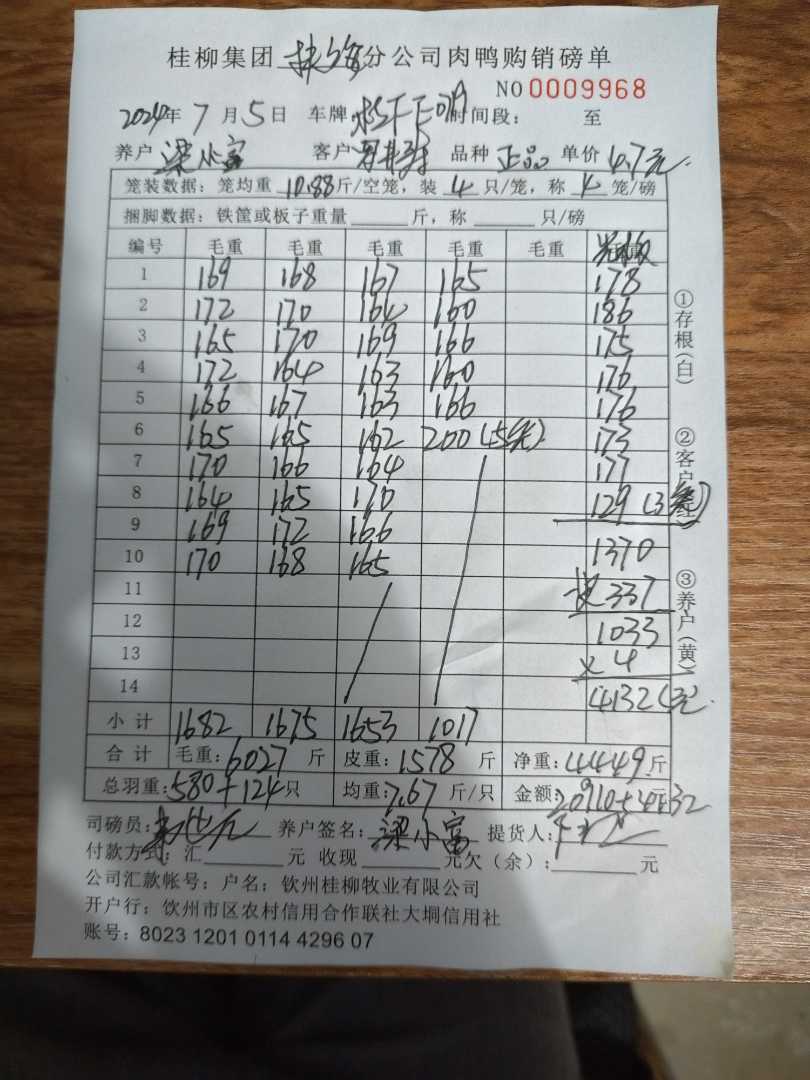 桂柳集团 分公司肉鸭购销磅单
NO 0009968
2024年 7 月 5 日 车牌: 时间段: 至
养户 梁小富 客户 品种 正品 单价 4.7元
笼装数据: 笼均重 10.88 斤/空笼, 装 4 只/笼, 称 4 笼/磅
捆脚数据: 铁筐或板子重量 斤, 称 只/磅
编号 毛重 毛重 毛重 毛重 毛重
1 169 168 167 165 178
2 172 170 164 160 186
3 165 170 169 166 175
4 172 164 163 160 176
5 166 167 163 166 176
6 165 165 162 200 (5笼) 173
7 170 166 164 177
8 164 165 170 129 (3笼)
9 169 172 166 1370
10 170 168 165
11 337
12 1033
13 × 4
14 4132 元
小计 1682 1675 1653 1017
合计 毛重: 6027 斤 皮重: 1578 斤 净重: 4449 斤
总羽重: 580+124 只 均重: 7.67 斤/只 金额: 20910+4132 元
司磅员: 养户签名: 梁小富 提货人:
付款方式: 汇 元 收现 元欠(余): 元
公司汇款帐号: 户名: 钦州桂柳牧业有限公司
开户行: 钦州市区农村信用合作联社大垌信用社
账号: 8023 1201 0114 4296 07
①存根(白)
②客户(红)
③养户(黄)